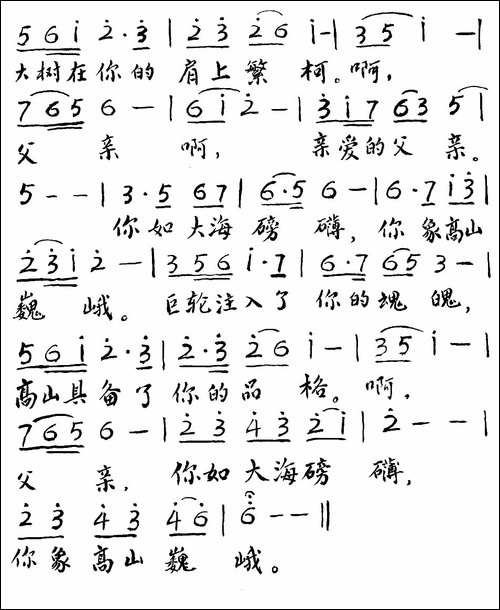 5 6 i 2·3 | 2 3 2 6 i- | 3 5 i - |
大树在你的 肩上繁 柯。啊,
7 6 5 6 - | 6 i 2 - | 3 i 7 6 3 5 |
父 亲 啊, 亲爱的父 亲。
5 - - | 3·5 6 7 | 6·5 6 - | 6·7 i 3 |
你如大海磅 礴, 你象高山
2 3 i 2 - | 3 5 6 i·7 | 6·7 6 5 3 - |
巍 峨。 巨轮注入了 你的魂 魄,
5 6 i 2·3 | 2·3 2 6 i - | 3 5 i - |
高山具备了 你的品 格。啊,
7 6 5 6 - | 2 3 4 3 2 i | 2 - - |
父 亲, 你如大海磅 礴,
2 3 4 3 4 6 | 6 - - ‖
你象高山巍 峨。